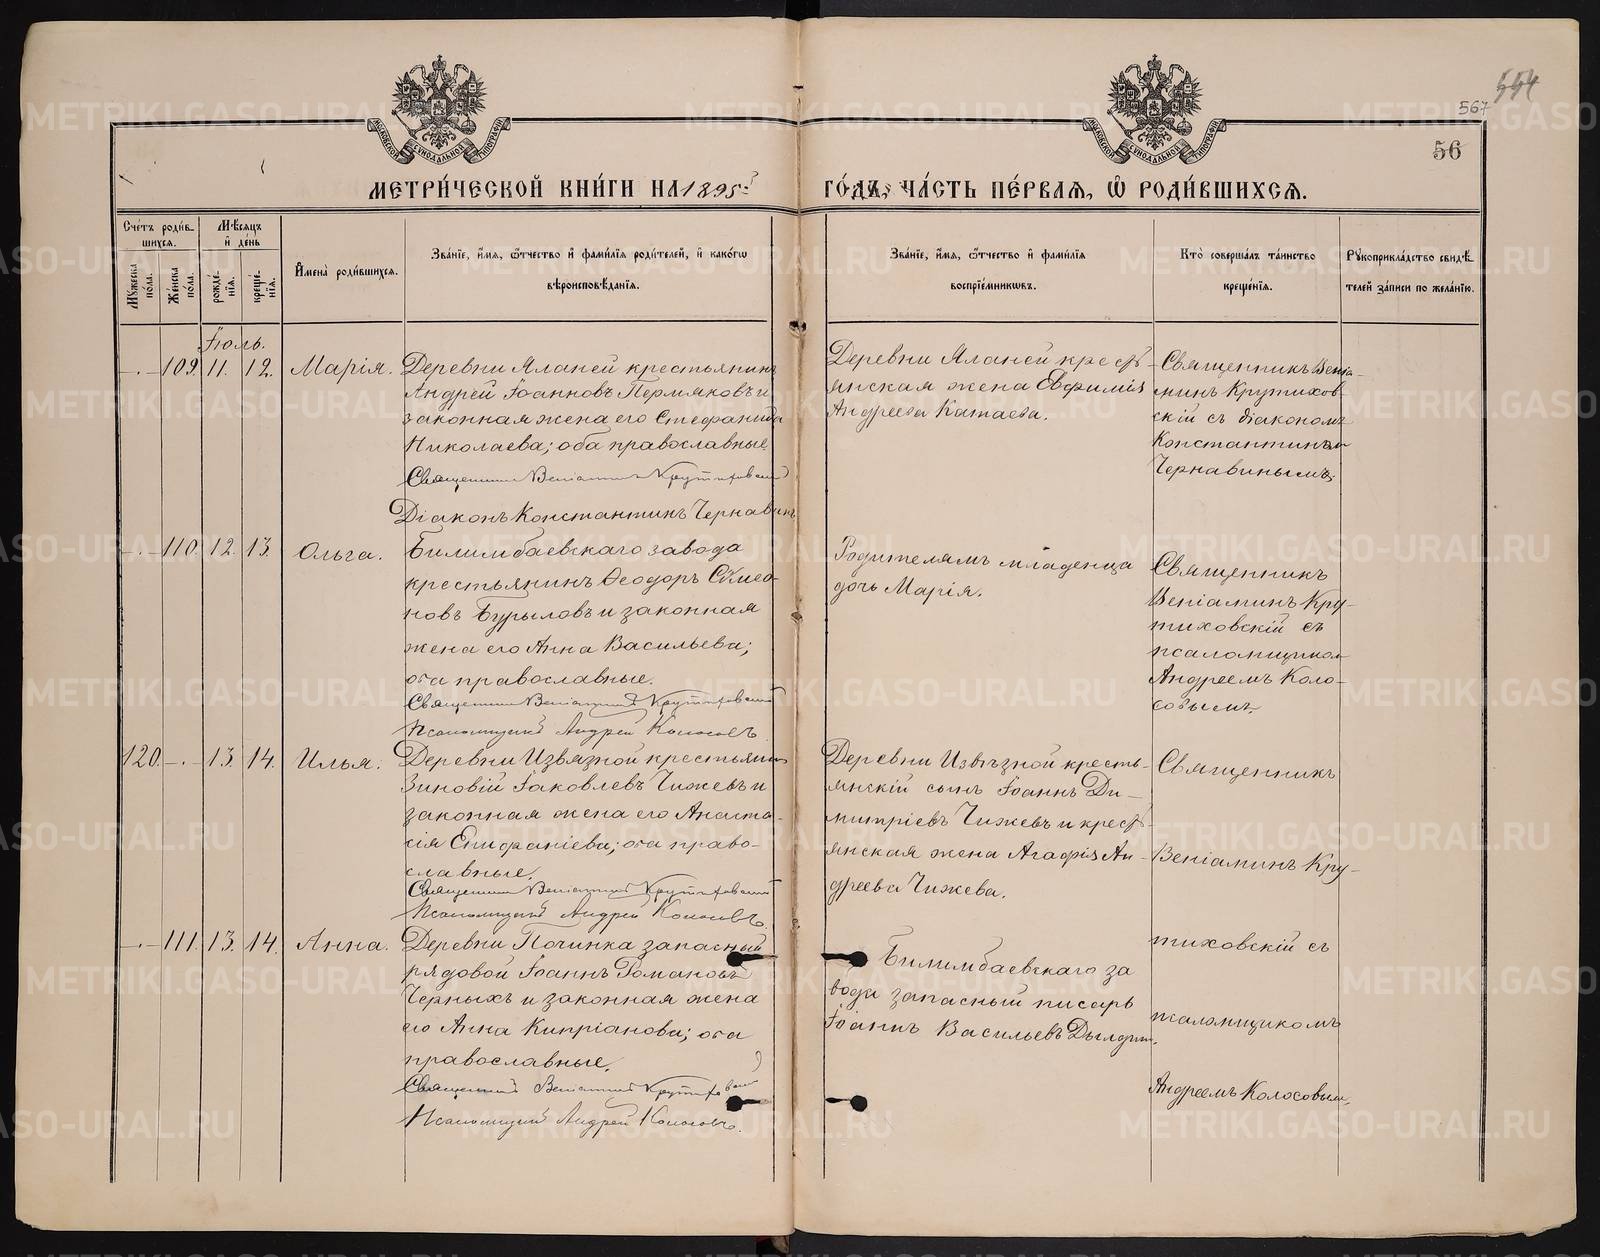 554
567
56
МОСКОВСКОЙ СѴНОДАЛЬНОЙ ТИПОГРАФІИ
МОСКОВСКОЙ СѴНОДАЛЬНОЙ ТИПОГРАФІИ
МЕТРИ́ЧЕСКОЙ КНИ́ГИ НА 1895й ГО́ДЪ, ЧА́СТЬ ПЕ́РВАѦ, Ѽ РОДИ́ВШИХСѦ.
Сче́тъ роди́в-
шихсѧ.
Мꙋ́жеска
по́ла.
Же́нска
по́ла.
Мѣ́сѧцъ
и҆ де́нь
рожде́-
нїѧ.
креще́-
нїѧ.
И҆мена̀ роди́вшихсѧ.
Зва́нїе, и҆́мѧ, ѻ҆́тчество и҆ фами́лїѧ роди́телей, и҆ како́гѡ
вѣроисповѣ́данїѧ.
Зва́нїе, и҆́мѧ, ѻ҆́тчество и҆ фами́лїѧ
воспрїе́мникѡвъ.
Кто̀ соверша́лъ та́инство
креще́нїѧ.
Рꙋкоприкла́дство свидѣ́-
телей за́писи по жела́нїю.
Іюль.
-.- 109. 11. 12. Марія.
Деревни Яланей крестьянинъ
Андрей Іоанновъ Пермяковъ и
законная жена его Стефанида
Николаева; оба православные.
Священникъ Веніаминъ Крутиховскій
Діаконъ Константинъ Чернавинъ
Деревни Яланей кресть-
янская жена Евфимія
Андреева Катаева.
Священникъ Веніа-
минъ Крутихов-
скій съ діакономъ
Константиномъ
Чернавинымъ.
-.- 110. 12. 13. Ольга.
Билимбаевскаго завода
крестьянинъ Ѳеодоръ Сѵмео-
новъ Бурыловъ и законная
жена его Анна Васильева;
оба православные.
Священникъ Веніаминъ Крутиховскій
Псаломщикъ Андрей Колосовъ
Родителямъ младенца
дочь Марія.
Священникъ
Веніаминъ Кру-
тиховскій съ
псаломщиком
Андреемъ Коло-
совымъ.
120. -.- 13. 14. Илья.
Деревни Извязной крестьянин
Зиновій Іаковлевъ Чижевъ и
законная жена его Анаста-
сія Епифаніева; оба право-
славные.
Священникъ Веніаминъ Крутиховскій
Псаломщикъ Андрей Колосовъ.
Деревни Извѣзной кресть-
янскій сынъ Іоаннъ Ди-
митріевъ Чижевъ и кресть-
янская жена Агафія Ан-
дреева Чижева.
Священникъ
Веніаминъ Кру-
тиховскій съ
псаломщикомъ
Андреемъ Колосовым.
-.- 111. 13. 14. Анна.
Деревни Починка запасный
рядовой Іоаннъ Романовъ
Черныхъ и законная жена
его Анна Кипріанова; оба
православные.
Священникъ Веніаминъ Крутиховскій
Псаломщикъ Андрей Колосовъ.
Билимбаевскаго за
вода запасный писарь
Іоаннъ Васильевъ Дылдин.